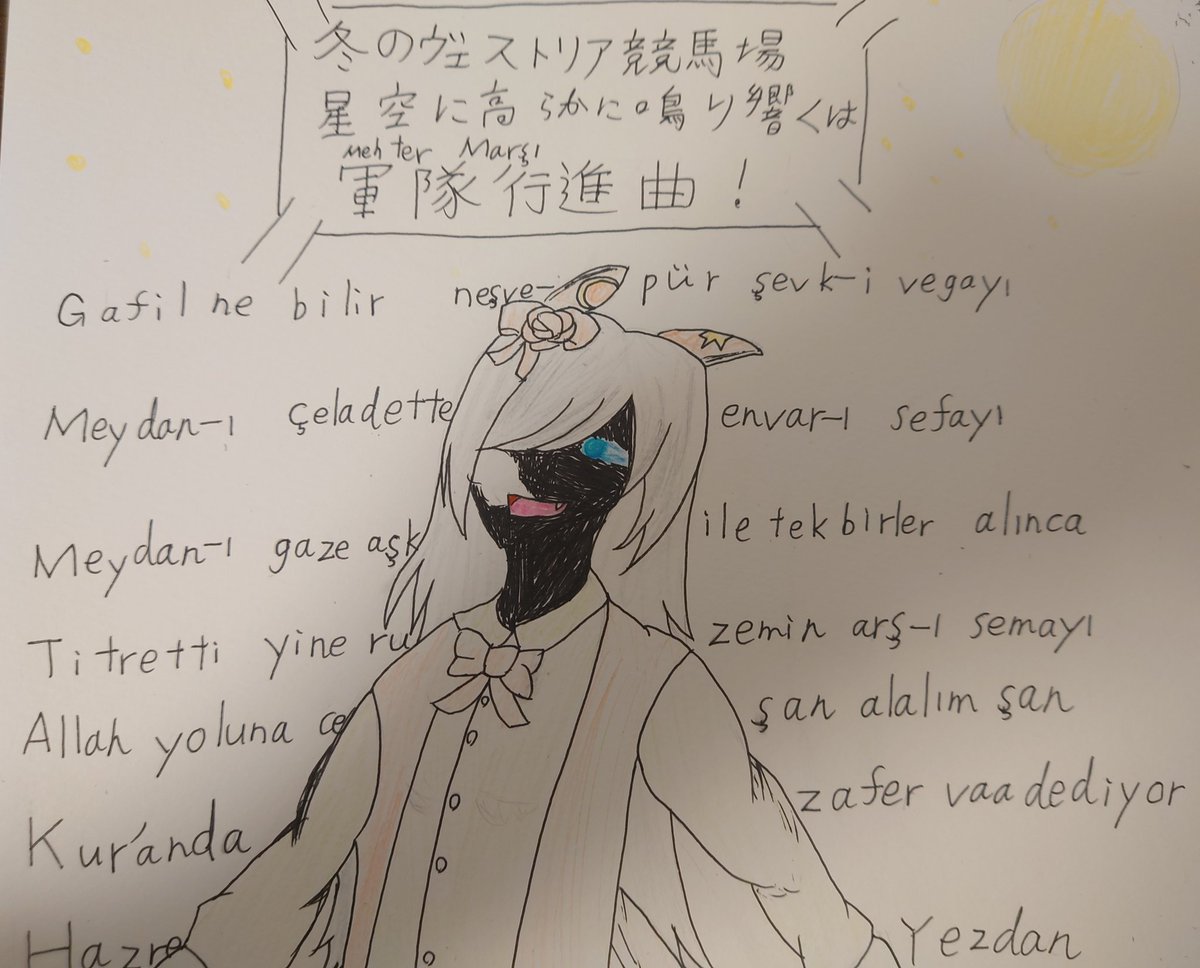 冬のヴェストリア競馬場
星空に高らかに鳴り響くは
Mehter Marşı
軍隊行進曲!
Gafil ne bilir neşve- pür şevk-i vegayı
Meydan-ı çeladette envar-ı sefayı
Meydan-ı gaze aşk ile tekbirler alınca
Titretti yine ru zemin arş-ı semayı
Allah yoluna ce şan alalım şan
Kur'anda zafer vaadediyor
Hazre Yezdan